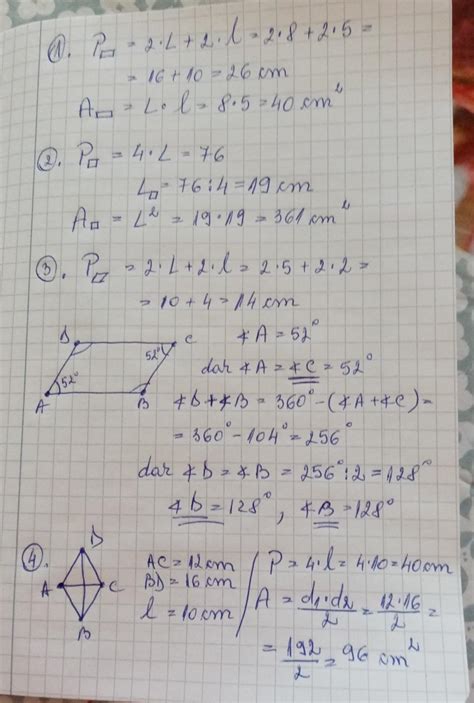 ①. P▭ = 2·L + 2·l = 2·8 + 2·5 =
= 16 + 10 = 26 cm
A▭ = L·l = 8·5 = 40 cm²
②. P□ = 4·L = 76
L□ = 76 : 4 = 19 cm
A□ = L² = 19·19 = 361 cm²
③. P▱ = 2·L + 2·l = 2·5 + 2·2 =
= 10 + 4 = 14 cm
D C
52°
52°
A B
∢A = 52°
dar ∢A = ∢C = 52°
∢D + ∢B = 360° - (∢A + ∢C) =
= 360° - 104° = 256°
dar ∢D = ∢B = 256° : 2 = 128°
∢D = 128°, ∢B = 128°
④.
D
A C
B
AC = 12 cm
BD = 16 cm
l = 10 cm
P = 4·l = 4·10 = 40 cm
A = d1·d2/2 = 12·16/2 =
= 192/2 = 96 cm²